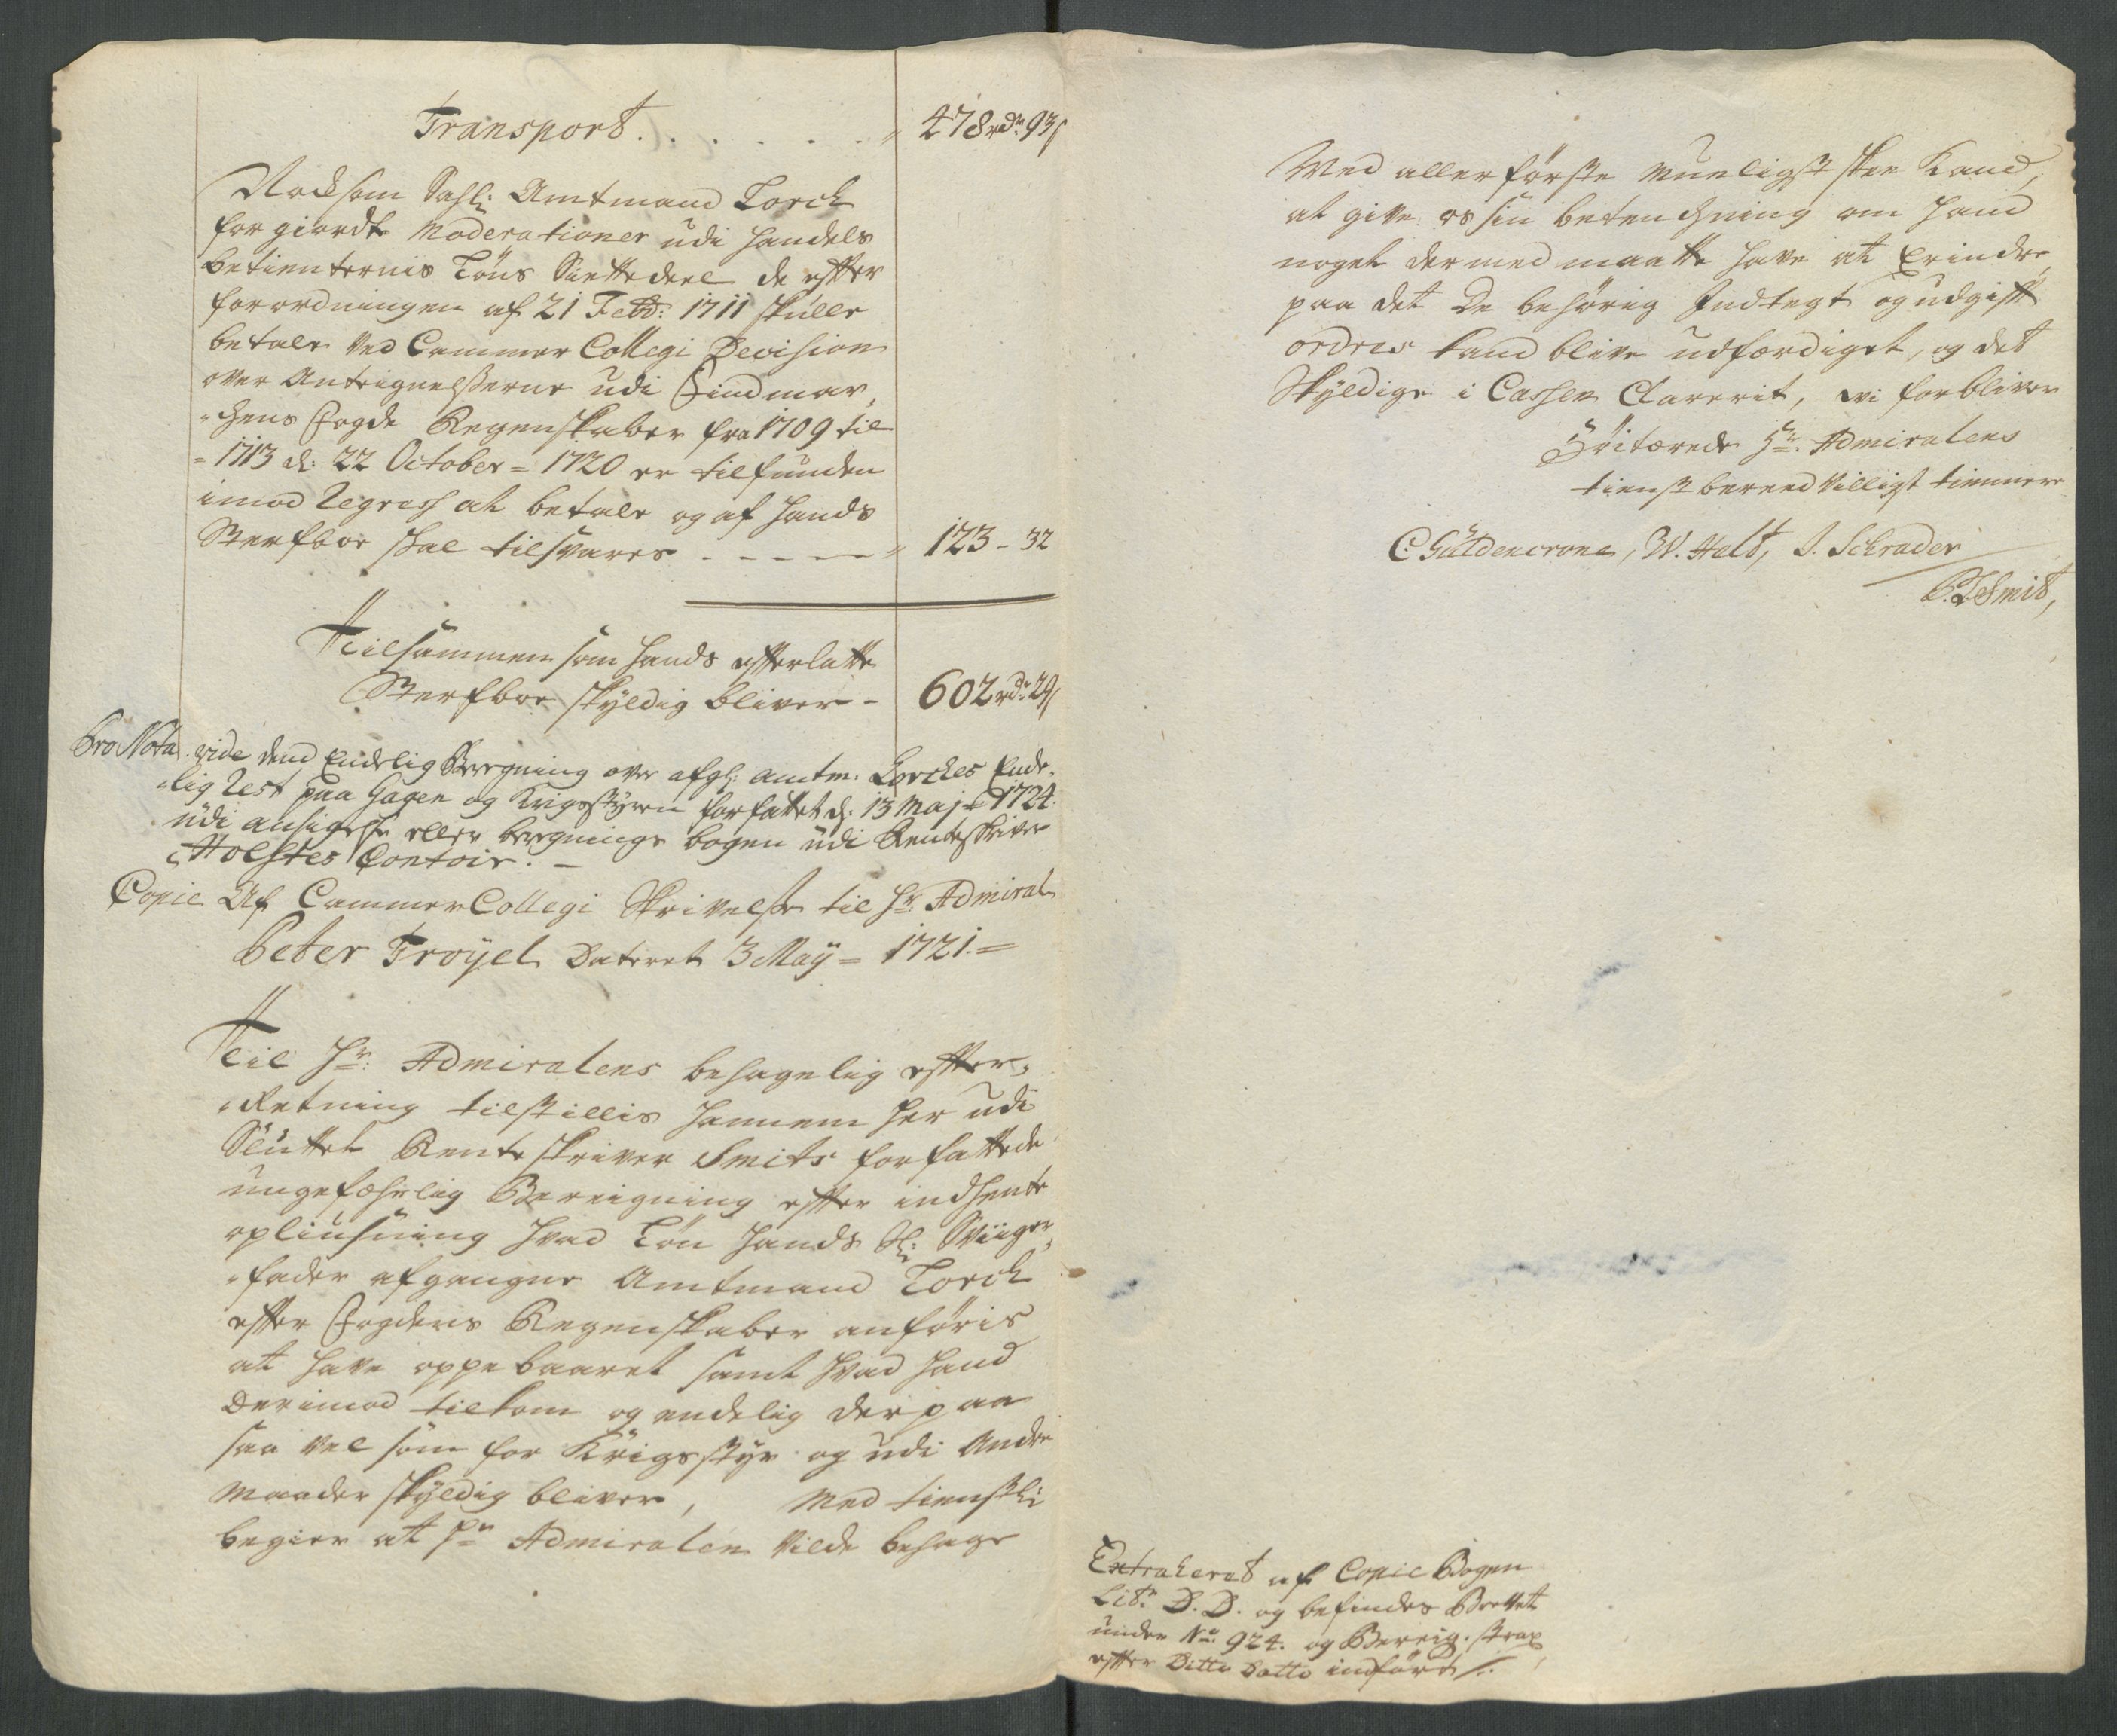 Transport. . . . . . . " 478 rdr 93 s
Nock som Sahl: Amtmand Lorck
for giordte Moderationer udi Handels
betienternis Löns Siette deel de effter
forordningen af 21 Febr: 1711 skulle
betale ved Cammer Collegi Decision
over Anteignelsserne udi Find mar,
"chens Fogde Regenskaber fra 1709 til
= 1713 d: 22 October = 1720 er tilfunden
imod Regress at betale og af hands
Sterfboe skal tilsvares - - - - - " 123 - 32
Tilsammen som hands efterlatte
Sterfboe skyldig bliver - 602 rdr 29 s
Pro Nota. vide dend Endelig Beregning over afgl: amtm: Lorckes Ende,
"lig Rest paa Gagen og Krigsstyren forfattet d: 13 Maj 1724.
udi ansigelse eller beregnings bogen udi Renteskriver
Holstes Contoir. -
Copie Af Cammer Collegi Skrivelse til Hr Admiral
Peter Troÿel Dateret 3 Maÿ = 1721. =
Til Hr: Admiralens behagelig effter,
"Retning tilstillis hannem her udi
Sluttet Renteskriver Smits forfattede
ungefæhrlig Bereigning effter indhente
opliusning hvad Lön hands Sl: Sviiger,
"fader afgangne Amtmand Lorck
effter Fogdens Regenskaber anföris
at have oppebaaret samt hvad hand
derimod tilkom og endelig der paa
saa vel som for Krigsstyr og udi Andre
maader skyldig bliver, Med tienstl:
begier at Hr Admiralen vilde behage
Med allerförste mueligst skee kand,
at give os sin betenchning om hand
noget dermed maatte have at Erindre,
paa det De behörig Indtegt og udgift
ordres kand blive udfærdiget, og det
Skyldige i Cassen Clarerit, vi forbliver
Höitærede Hr. Admiralens
tienstbereed villigst tiennere
C: Güldencrone, W. Halt, J. Schrader
P. T. Smit,
Extraherit af Copie Bogen
Litr. D. D. og befindes Brevet
under No: 924. og Bereig. strax
effter Ditto Datto indført /.